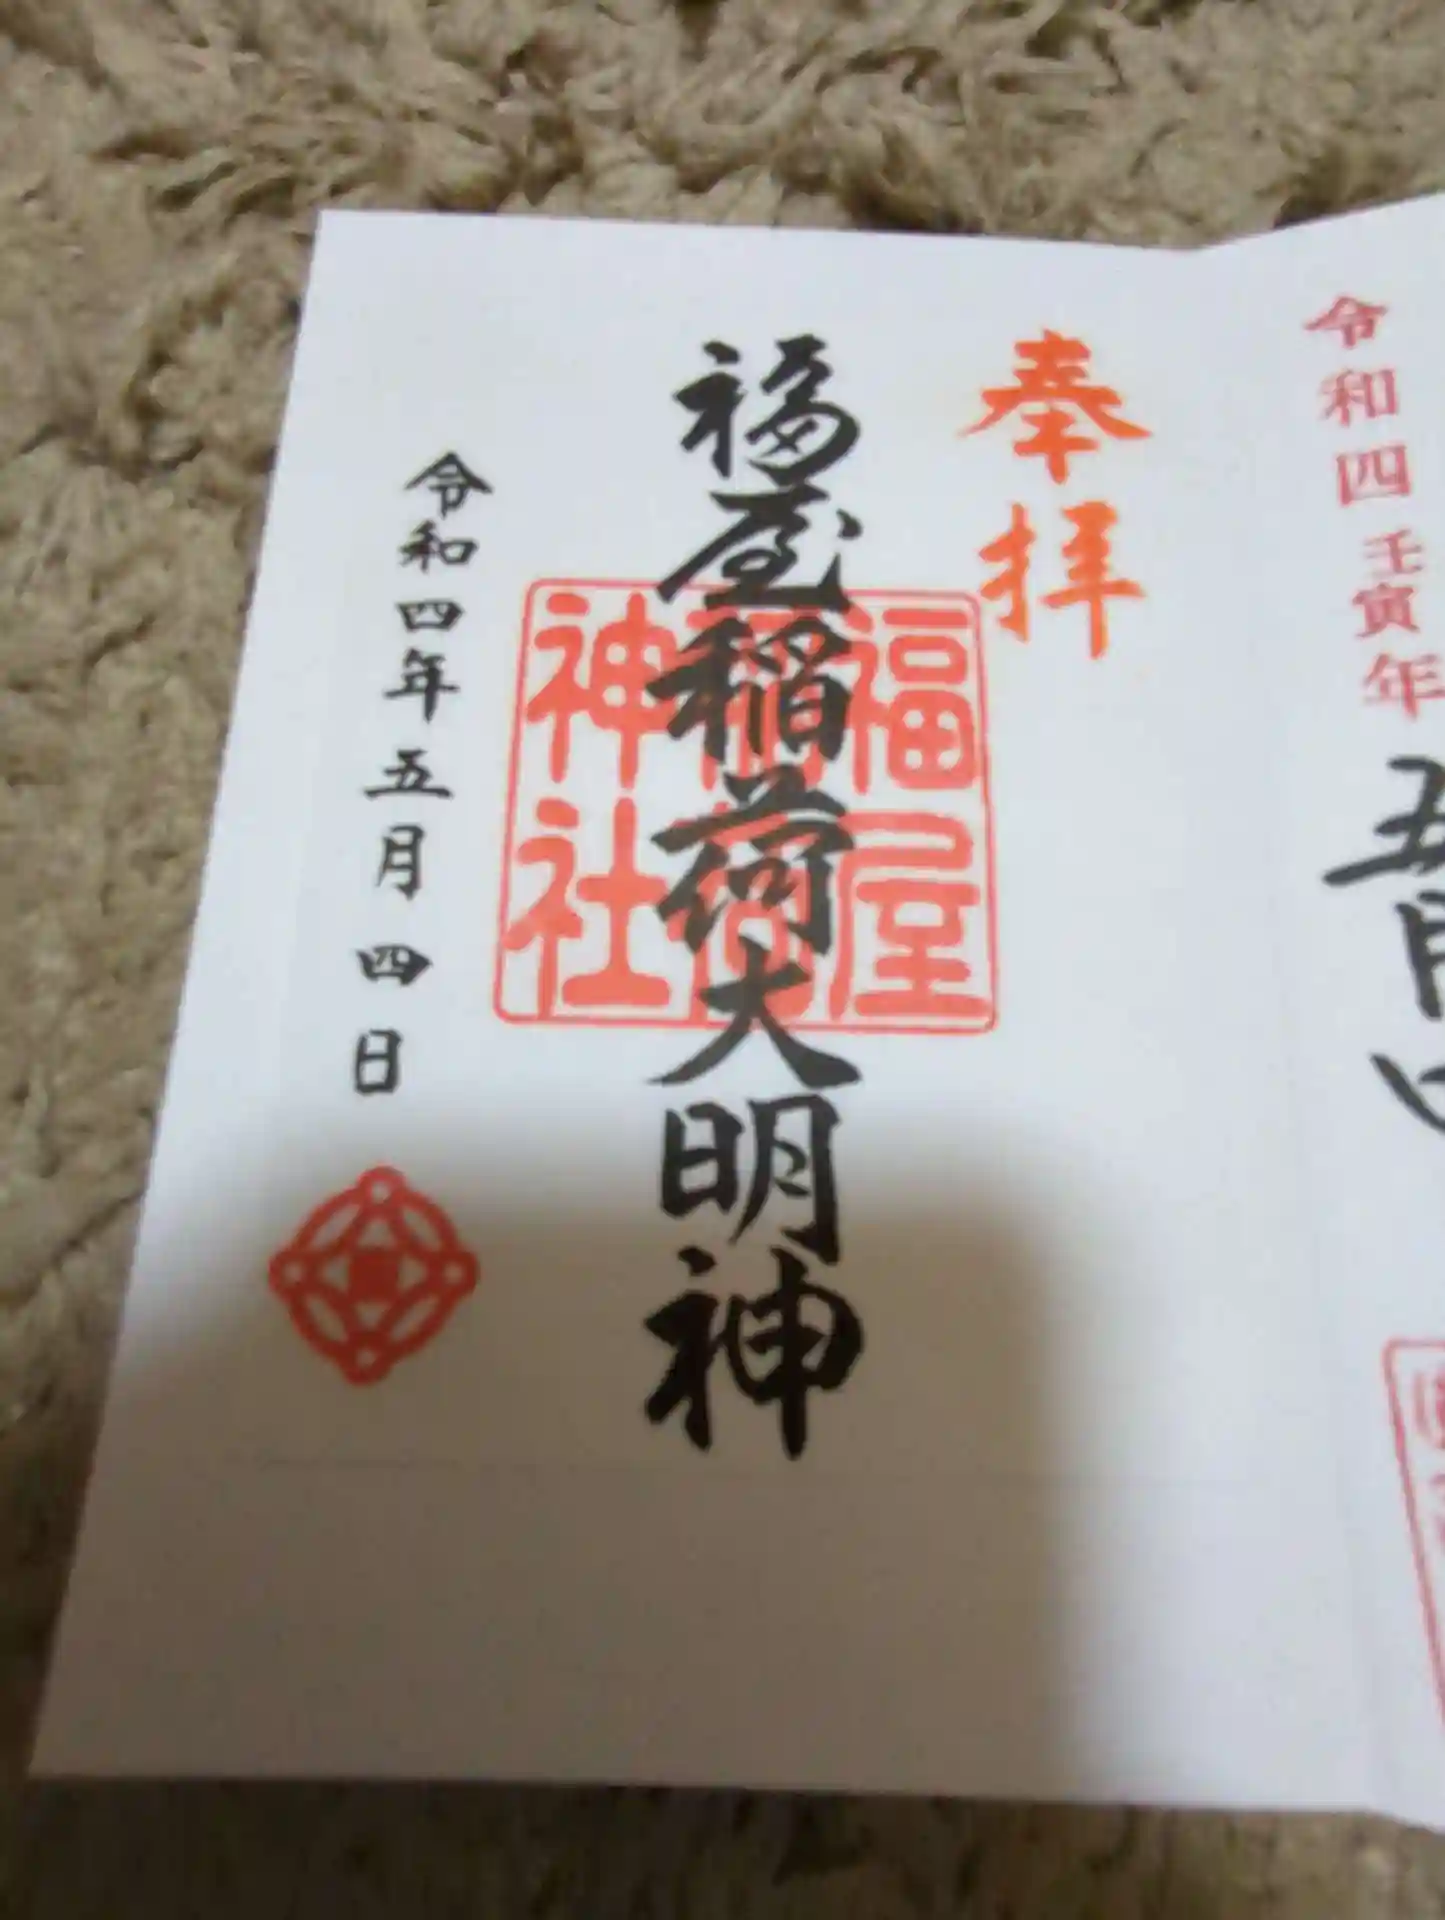 令和四壬寅年
五月四
奉拝
福屋稲荷大明神
福屋
稲荷
神社
令和四年五月四日